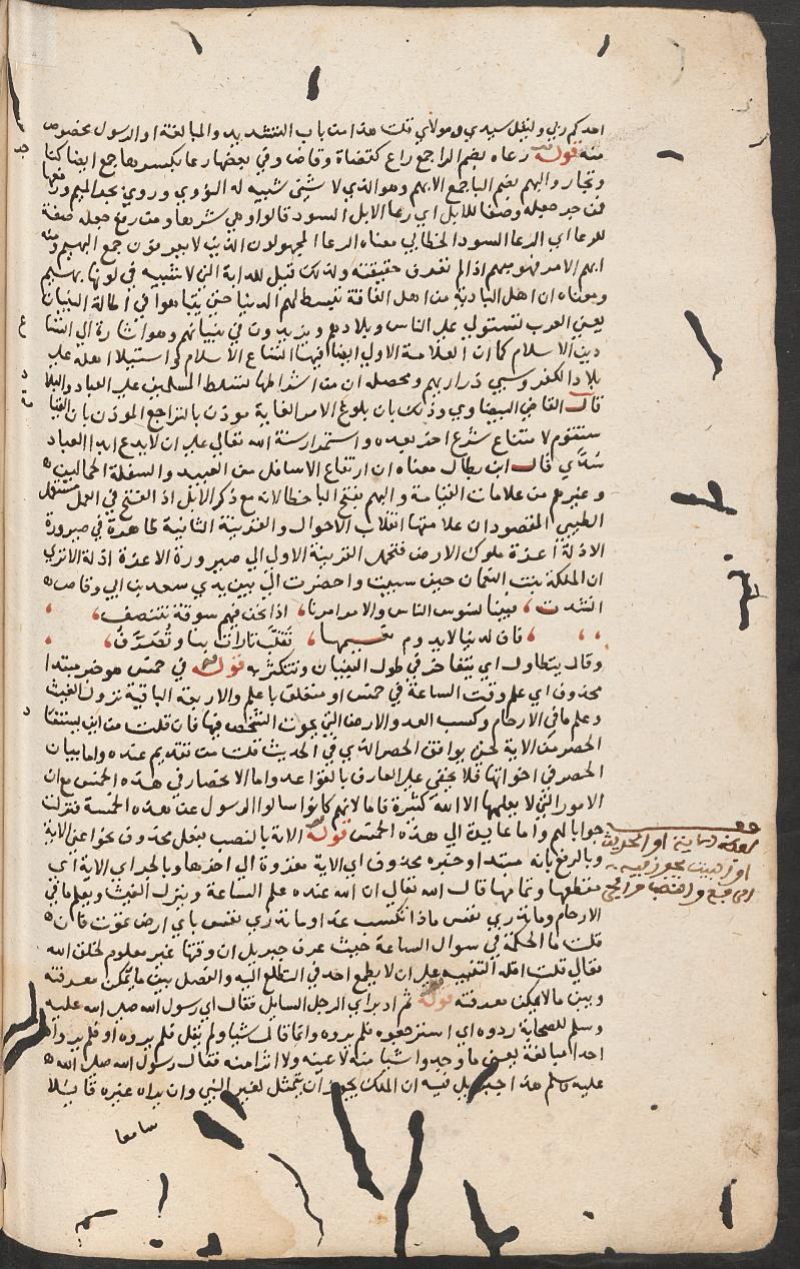 احدكم ربي وليقل سيدي ومولاي قلت هذا من باب التشديد والمبالغة او الرسول مخصوص
منه قوله رعاه بضم الرا جمع راع كقضاة وقاض وفي بعضها رعا بكسرها جمع ايضا كتا
وتجار والبهم بضم البا جمع الابهم وهو الذي لا شي شبيه له النووي وروي بجر الميم ورفعها
فمن جر جعله وصفا للابل اي رعا الابل السود قالوا وهي شرها ومن رفع جعله صفة
للرعا اي الرعا السود الخطابي معناه الرعا المجهولون الذين لا يعرفون جمع البهيم ومنه
ابهم الامر فهو مبهم اذا لم تعرف حقيقته ولذلك قيل للدابة التي لا شية في لونها بهيم
ومعناه ان اهل البادية من اهل الفاقة تبسط لهم الدنيا حتى يتباهوا في اطالة البنيان
يعني العرب تستولي على الناس وبلادهم ويزيدون في بنيانهم وهو اشارة الى اتسا
دين الاسلام كما ان العلامة الاولى ايضا فيها اتساع الاسلام واستيلا اهله على
بلاد الكفر وسبي ذراريهم ومحصله ان من اشراطها تسلط المسلمين على العباد والبلا
قال القاضي البيضاوي وذلك بان بلوغ الامر الغاية موذن بالتراجع الموذن بان القيا
ستقوم لامتناع شرع اخر بعده واستمرار سنة الله تعالى على ان لا يدع ابدا العباد
سدى قال ابن بطال معناه ان ارتفاع الاسافل من العبيد والسفلة الجمالين
وغيرهم من علامات القيامة والبهم بفتح البا خطا لانه مع ذكر الابل اذ الفتح في الحمل مستعمل
الطيبي المقصود ان علامتها انقلاب الاحوال والقرينة الثانية ظاهرة في صيرورة
الاذلة اعزة ملوك الارض فتحمل القرينة الاولى الى صيرورة الاعزة اذلة الا ترى
ان الملكة بنت النعمان حين سبيت واحضرت الى بين يدي سعد بن ابي وقاص
انشدت ، فبينا نسوس الناس والامر امرنا ، اذا نحن فيهم سوقة نتنصف ،
، فان لدنيا لا يدوم نعيمها ، تقلب تارات بنا وتصرف ،
وقال يتطاول اي يتفاخر في طول البنيان ويتكثر به قوله في خمس هو خبر مبتدا
محذوف اي علم وقت الساعة في خمس او متعلق باعلم والاربعة الباقية نزول الغيث
وعلم ما في الارحام وكسب الغد والارض التي يموت الشخص فيها فان قلت من اين يستفا
الحصر من الاية حتى يوافق الحصر الذي في الحديث قلت من تقديم عنده واما بيان
الحصر في اخواتها فلا يخفى على العارف بالقواعد واما الانحصار في هذه الخمس مع ان
الامور التي لا يعلمها الا الله كثيرة فاما لانهم كانوا سالوا الرسول عن هذه الخمسة فنزلت
جوابا لهم واما عايدة الى هذه الخمس قوله الاية بالنصب بفعل محذوف نحو اعني الاية
وبالرفع بانه مبتدا وخبره محذوف اي الاية مقروة الى اخرها وبالجر اي الى الاية اي
مقطعها وتمامها قال الله تعالى ان الله عنده علم الساعة وينزل الغيث ويعلم ما في
الارحام وما تدري نفس ماذا تكسب غدا وما تدري نفس باي ارض تموت فان
قلت ما الحكمة في سوال الساعة حيث عرف جبريل ان وقتها غير معلوم لخلق الله
تعالى قلت اقله التنبيه على ان لا يطمع احد في التطلع اليه والفصل بين ما يمكن معرفته
وبين ما لا يمكن معرفته قوله ثم ادبر اي الرجل السايل فقال اي رسول الله صلى الله عليه
وسلم للصحابة ردوه اي استرجعوه فلم يروه وانما قال شيا ولم يقل فلم يروه او فلم يروا
احدا مبالغة يعني ما وجدوا شيا منه لا عينه ولا اثرا منه فقال رسول الله صلى الله
عليه وسلم هذا جبريل فيه ان الملك يجوز ان يتمثل لغير النبي وان يراه غيره قايلا
سامعا